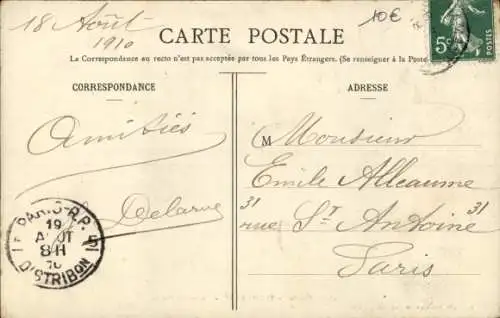 18 Août
1910
10€
CARTE POSTALE
La Correspondance au recto n'est pas acceptée par tous les Pays Étrangers. (Se renseigner à la Poste
CORRESPONDANCE
ADRESSE
Amitiés
Delarue
M Monsieur
Emile Alleaume
31 rue St Antoine 31
Paris
5c
POSTES
PARIS R.P.
19
AOUT
8H
10
DISTRIBON